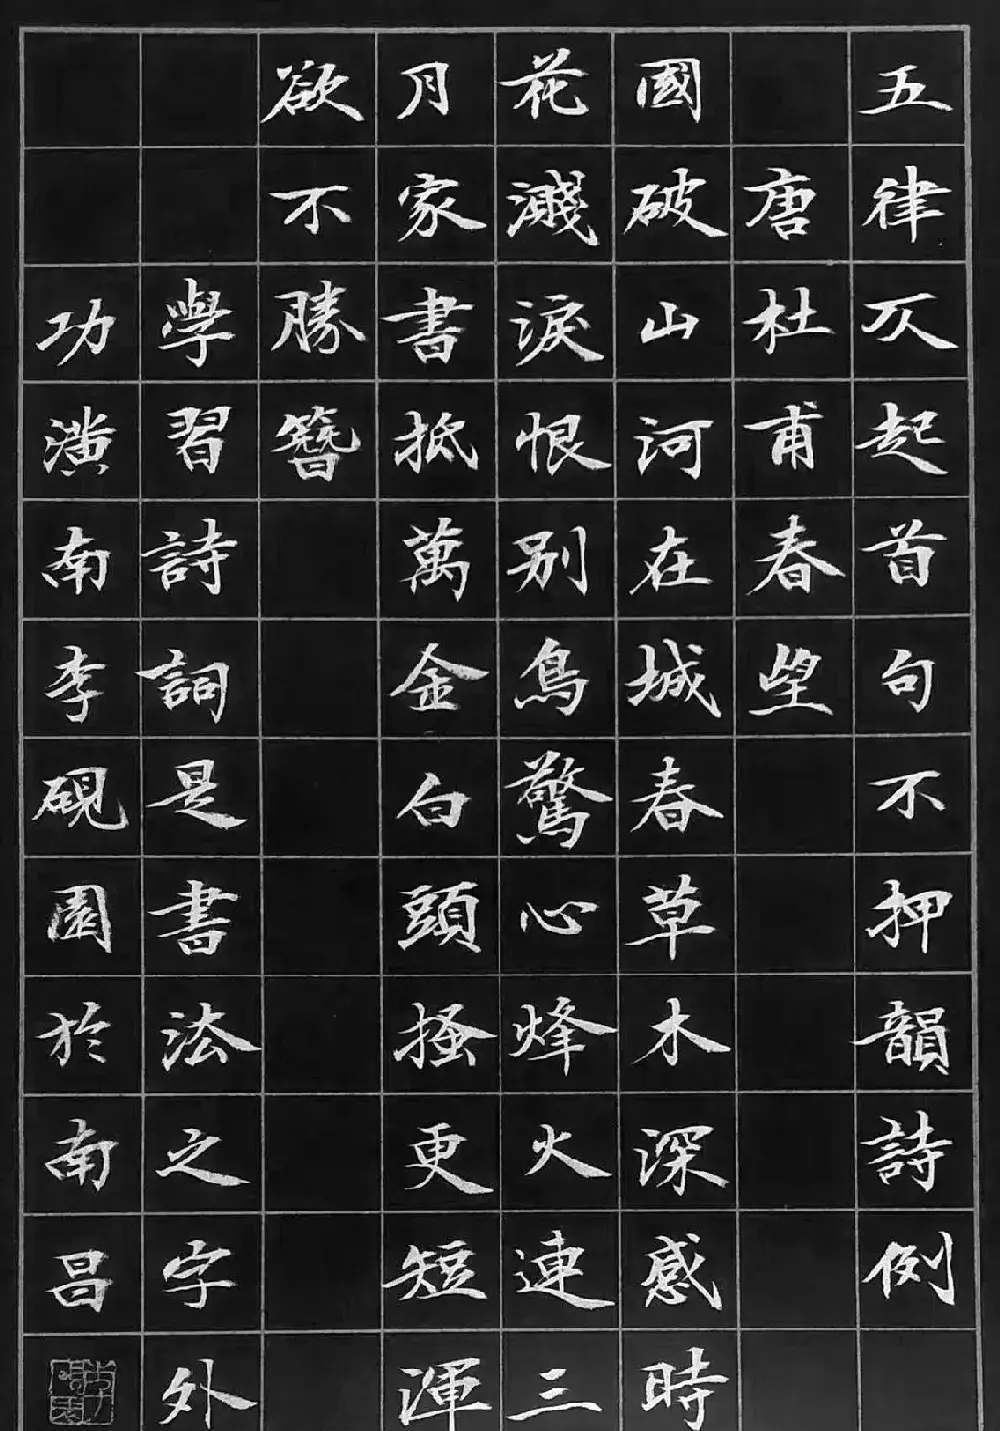 五律仄起首句不押韻詩例
唐杜甫春望
國破山河在城春草木深感時
花濺淚恨别鳥驚心烽火連三
月家書抵萬金白頭搔更短渾
欲不勝簪
學習詩詞是書法之字外
功漢南李硯園於南昌